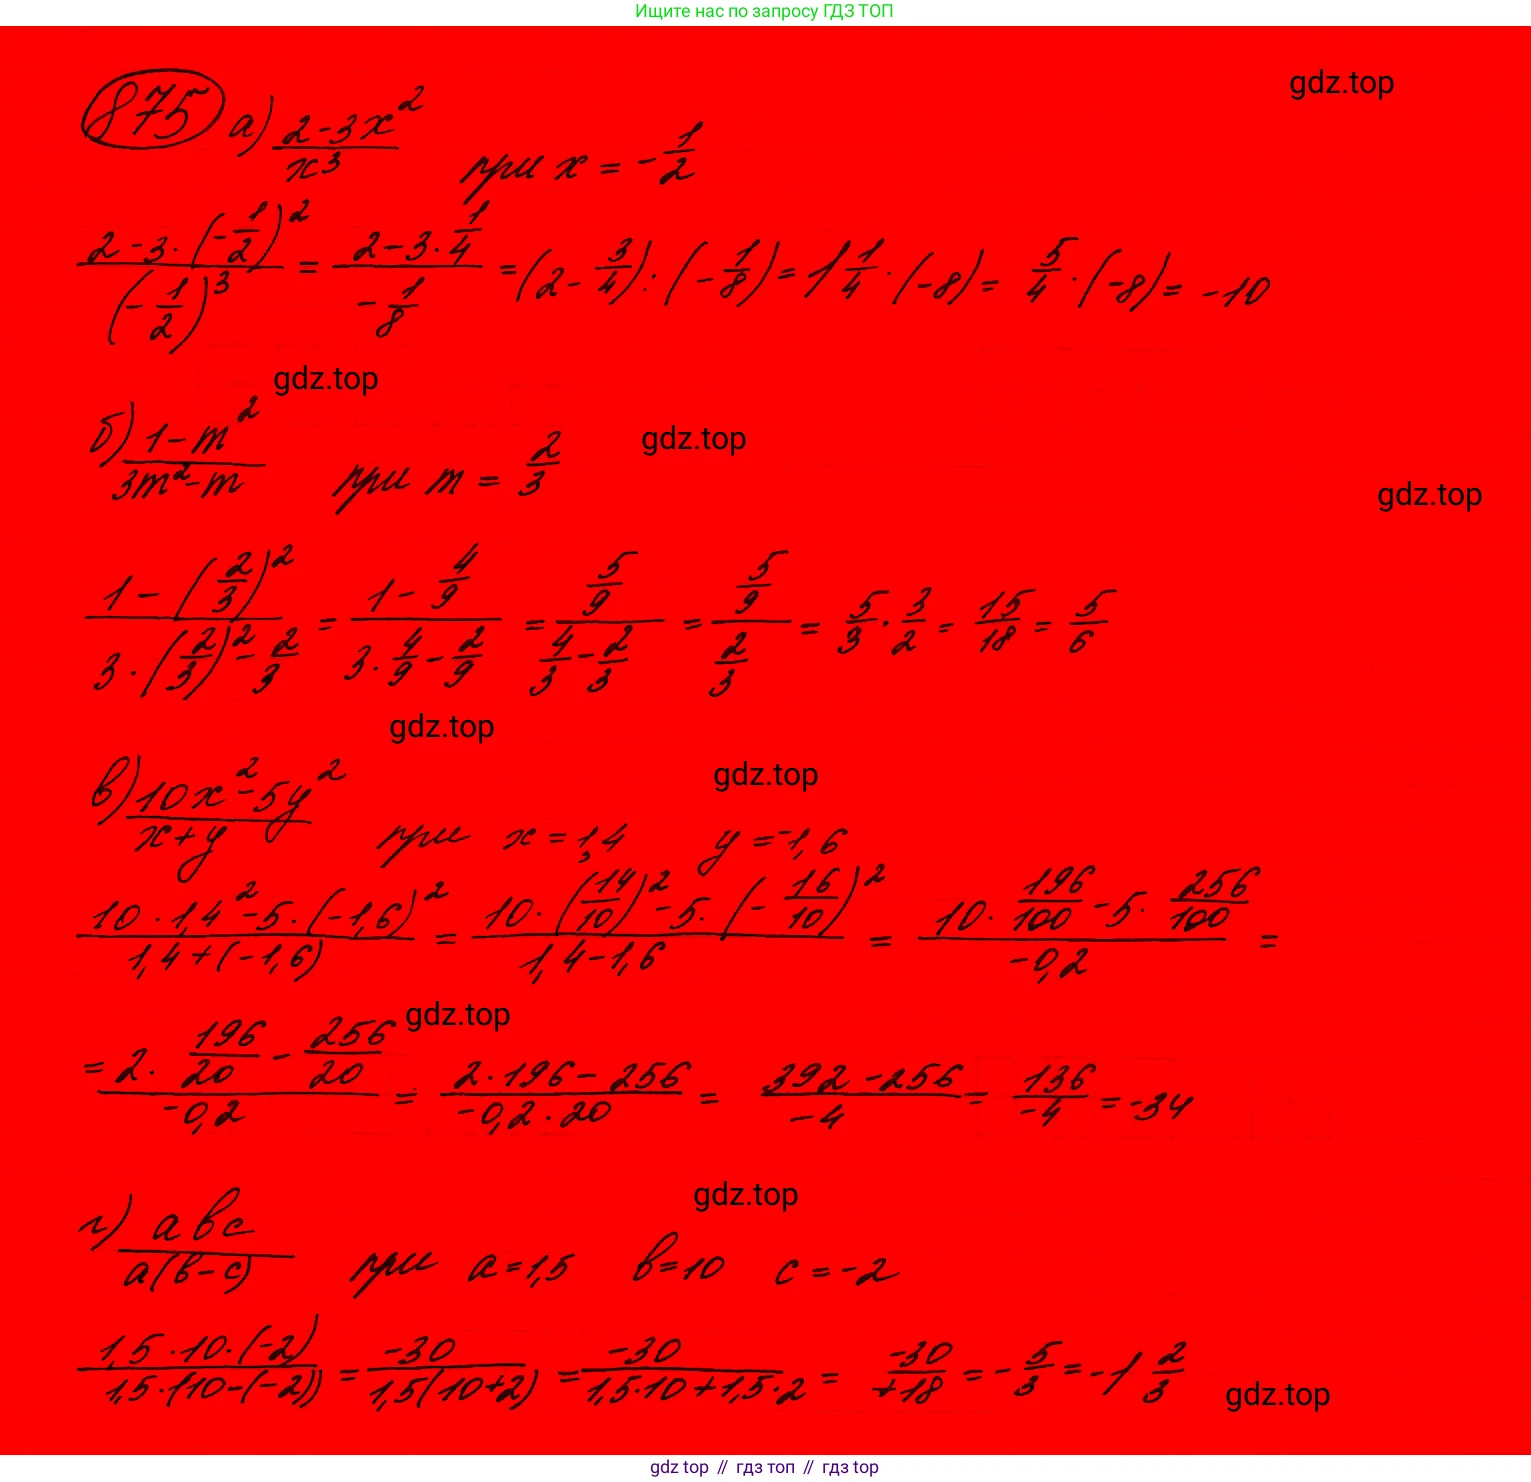 Ищите нас по запросу ГДЗ ТОП
gdz.top
875 а) (2-3x²)/x³ при x = -1/2
(2-3·(-1/2)²)/(-1/2)³ = (2-3·1/4)/(-1/8) = (2-3/4):(-1/8) = 1 1/4·(-8) = 5/4·(-8) = -10
gdz.top
б) (1-m²)/(3m²-m) при m = 2/3
gdz.top
gdz.top
(1-(2/3)²)/(3·(2/3)²-2/3) = (1-4/9)/(3·4/9-2/9) = (5/9)/(4/3-2/3) = (5/9)/(2/3) = 5/3·3/2 = 15/18 = 5/6
gdz.top
gdz.top
в) (10x²-5y²)/(x+y) при x = 1,4 y = -1,6
(10·1,4²-5·(-1,6)²)/(1,4+(-1,6)) = (10·(14/10)²-5·(-16/10)²)/(1,4-1,6) = (10·196/100-5·256/100)/(-0,2) =
gdz.top
= (2·196/20-256/20)/(-0,2) = (2·196-256)/(-0,2·20) = (392-256)/(-4) = 136/(-4) = -34
gdz.top
г) abc/(a(b-c)) при a=1,5 b=10 c=-2
(1,5·10·(-2))/(1,5·(10-(-2))) = -30/(1,5(10+2)) = -30/(1,5·10+1,5·2) = -30/(+18) = -5/3 = -1 2/3
gdz.top
gdz top // гдз топ // гдз top